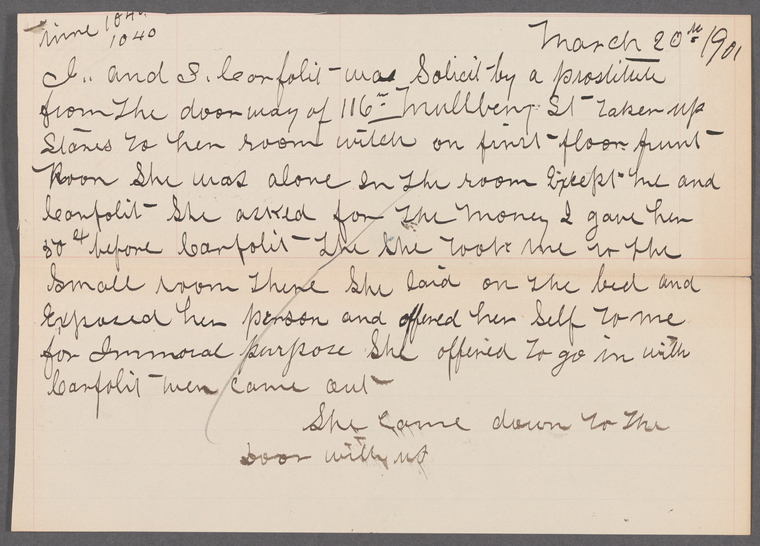 March 20th 1901
1040
I.. and S. Confolit - was Solicit by a prostitute
from The door way of 116 Mullberry St Taken up
Stares To her room witch on first floor frunt
Roon She was alone in The room Except me and
Confolit She asked for The Money I gave her
50 ct before Confolit - The She Took me to the
Small room There She laid on The bed and
Exposed her person and offered her Self To me
for Immoral purpose She offered To go in with
Confolit wen came out
She came down To The
Door with us